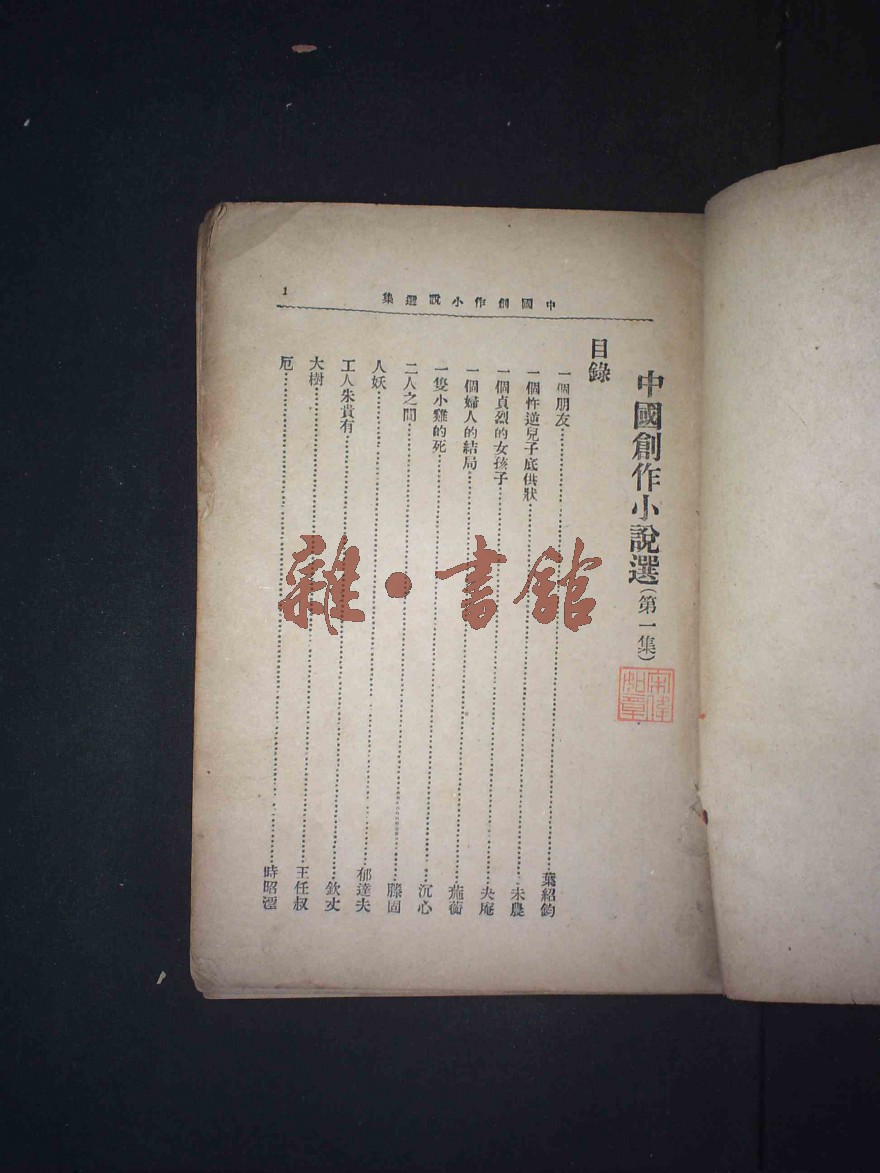 中國創作小說選集
1
中國創作小說選(第一集)
目錄
一個朋友 葉紹鈞
一個忤逆兒子底供狀 未農
一個貞烈的女孩子 夬庵
一個婦人的結局 蒓蘅
一隻小雞的死 沉心
二人之間 滕固
人妖 郁達夫
工人朱貴有 欽文
大樹 王任叔
厄 時昭瀛
雜·書館